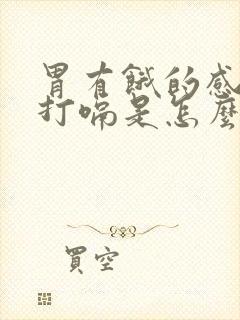 胃有餓的感
打嗝是怎麼
買空